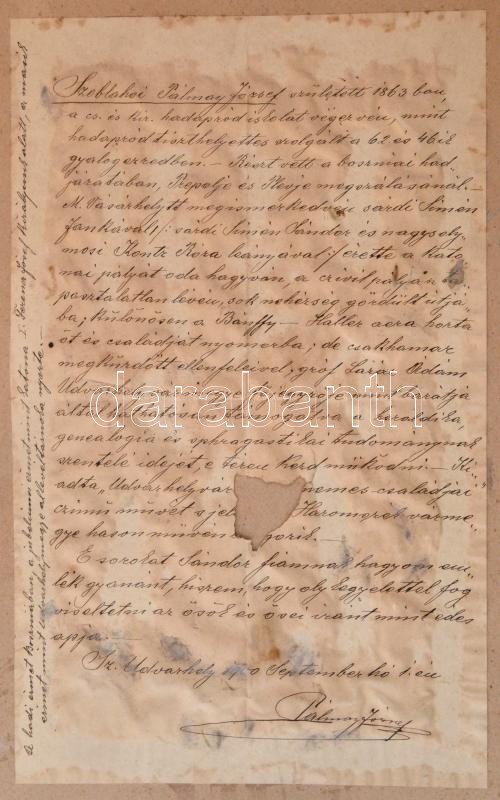 Szeblahoi Pálmay József született 1863 ban,
a cs. és kir. hadapród iskolát végezvén, mint
hadapród tiszthelyettes szolgált a 62 és 46 ik
gyalogezredben. — Részt vett a bosniai had
járatában, Prepolje és Plevje megszállásánál. —
M. Vásárhelytt megismerkedvén sárdi Simén
Jankával /: sárdi Simén Sándor és nagysoly
mosi Kontz Róza leányával :/ érette a kato
nai pályát oda hagyván, a civil pályán ta
pasztalatlan lévén, sok nehézség gördült útjá
ba; különösen a Bánffy — Haller aera hozta
őt és családját nyomorba; de csakhamar
megküzdött ellenfeleivel, gróf Lázár Ádám
Udvarhelyvármegye főispánja mint barátja
által támogatva a heraldika,
genealogia és sphragistikai tudománynak
szentelé idejét, e téren kezd működni. — Ki
adta „Udvarhelyvár nemes családjai"
czímű művét s jel Háromszék várme
gye hason művén
E sorokat Sándor fiamnak hagyom em
lék gyanánt, hiszem, hogy oly kegyelettel fog
viseltetni az ősök és ősei iránt mint édes
apja. —
Sz. Udvarhely September hó 1. én
Pálmay József
A hadi érmet Bosniában, a jubileumi érmet mint I. Ferencz József királyunk alatt, a másik
érmet mint nyerte.
darabanth